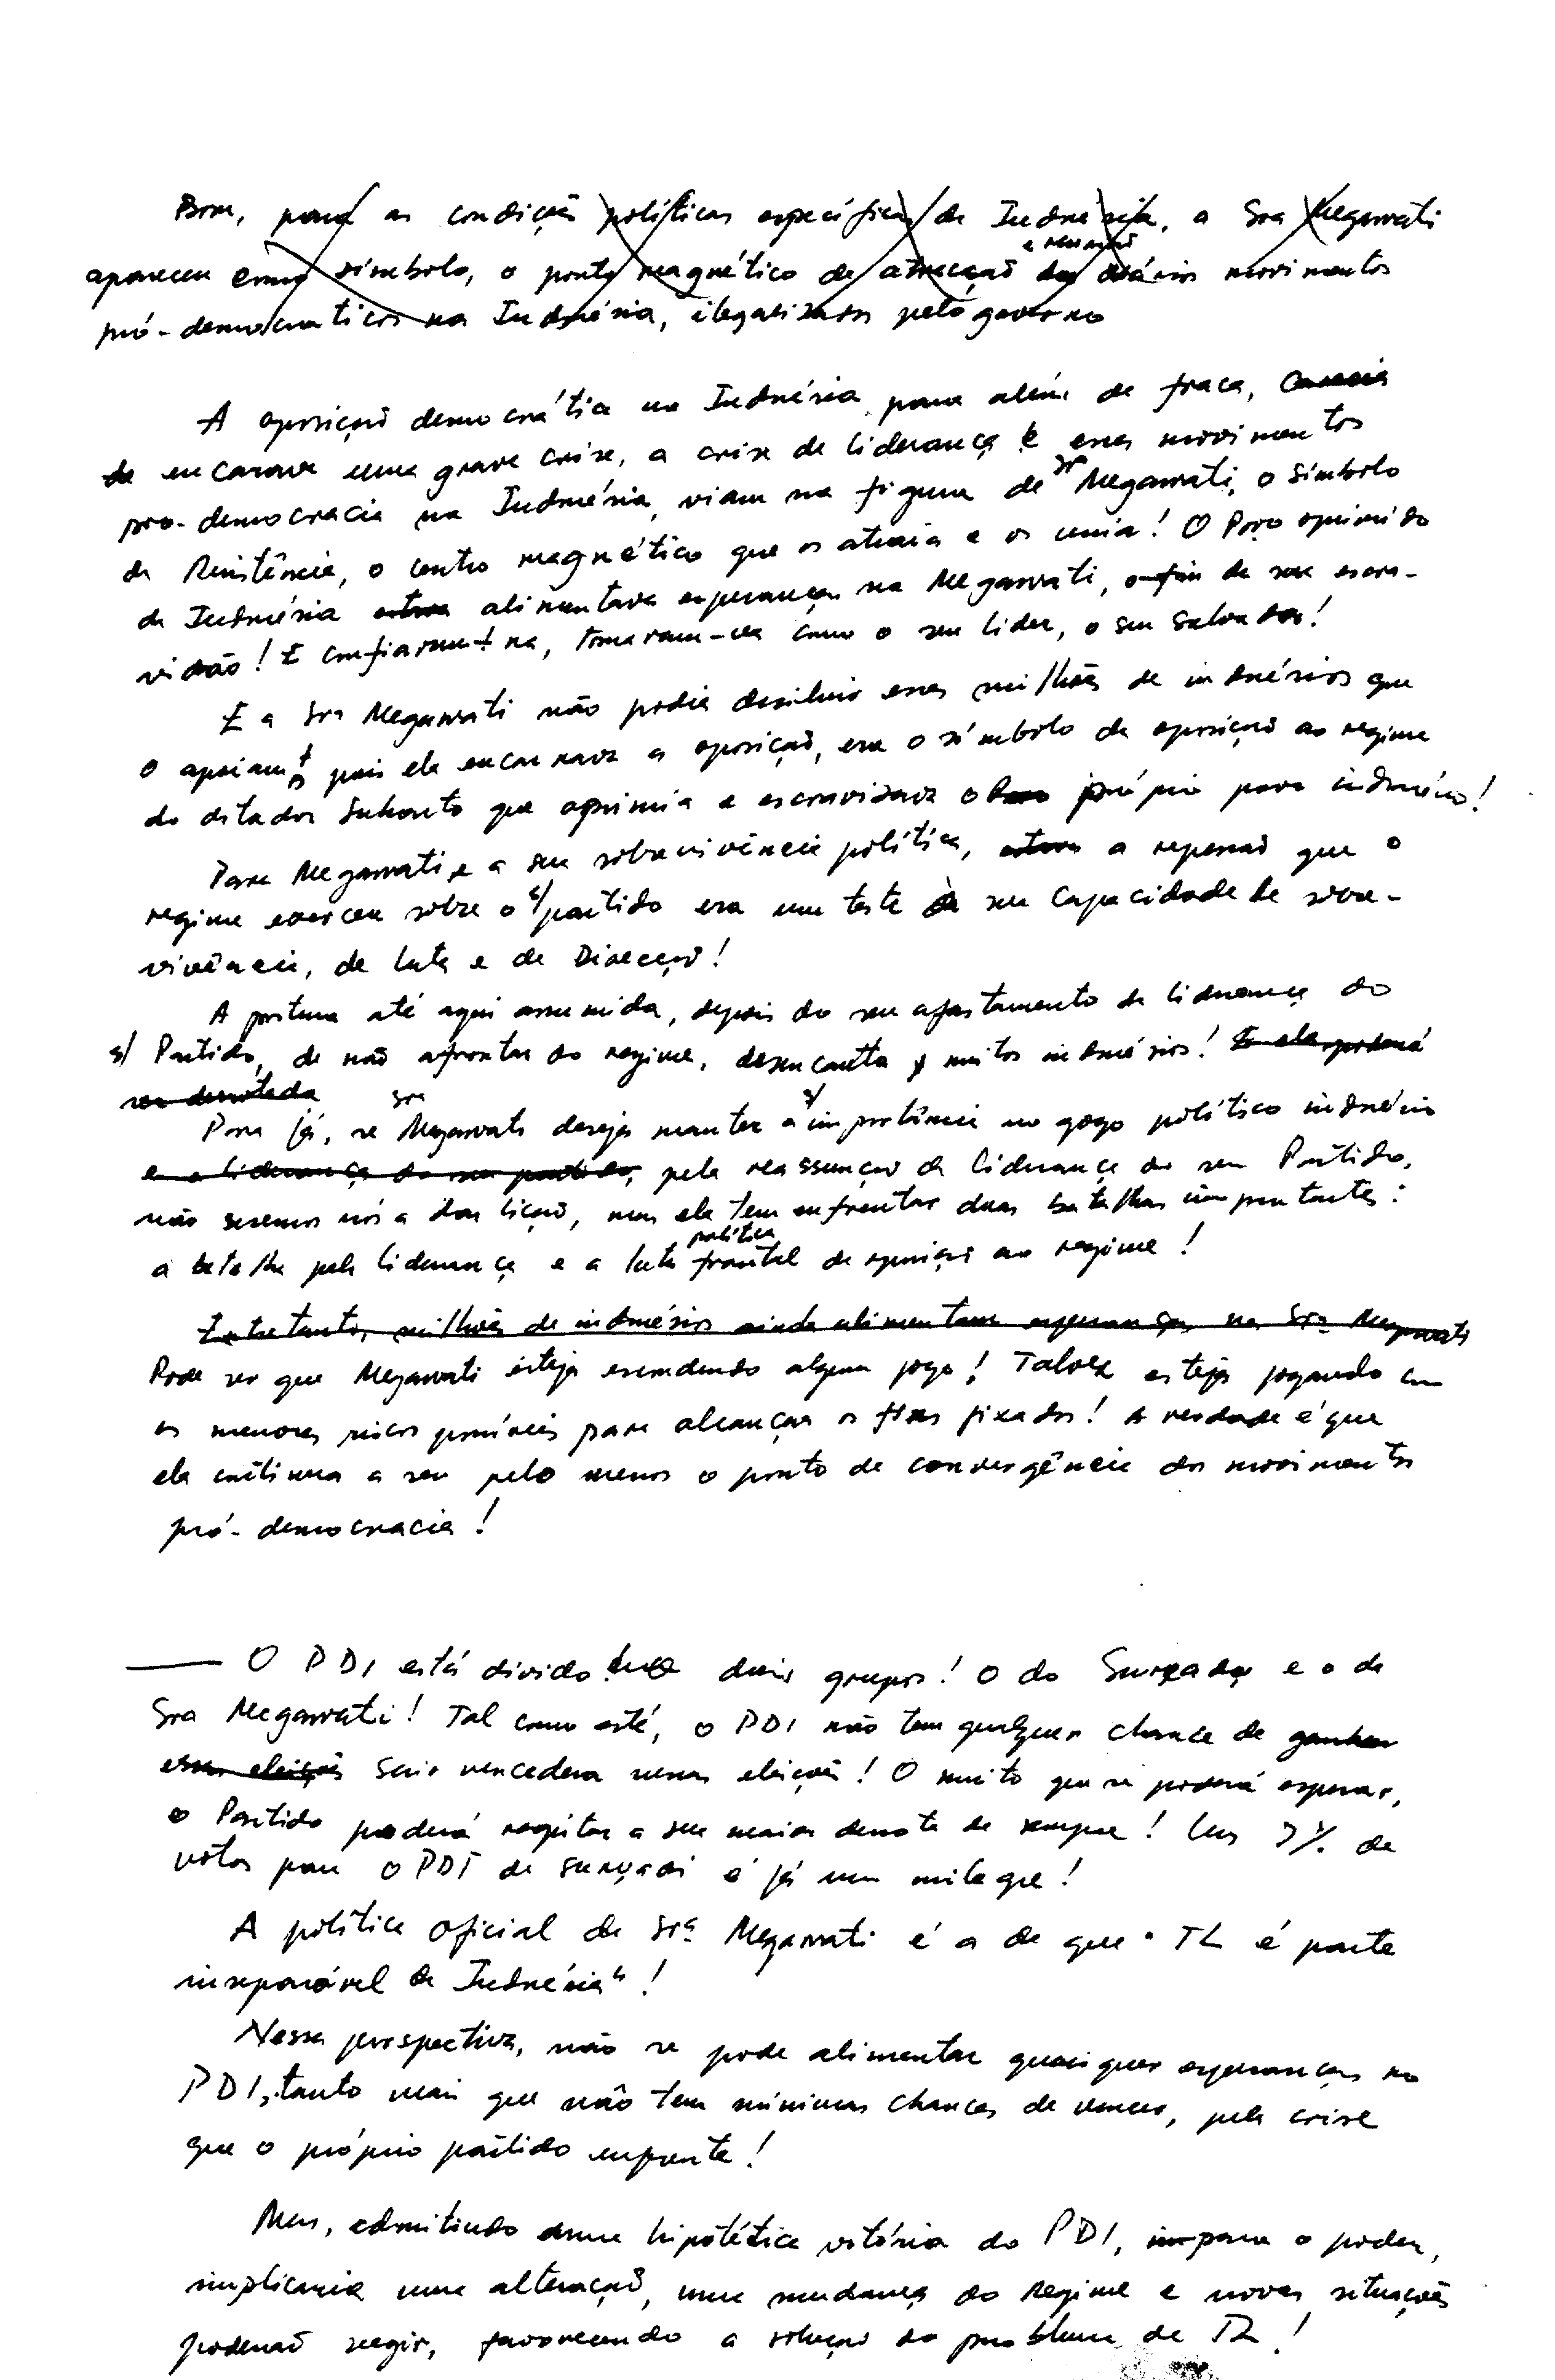 Bom, para as condições políticas específicas da Indonésia, a Sra Megawati
apareceu como símbolo, o ponto magnético de atracção e reunião dos vários movimentos
pró-democráticos na Indonésia, ilegalizados pelo governo
A oposição democrática na Indonésia, para além de fraca,
encarava uma grave crise, a crise de liderança e esses movimentos
pro-democracia na Indonésia, viam na figura de Sra Megawati, o símbolo
da Resistência, o centro magnético que os atraia e os unia! O Povo oprimido
da Indonésia alimentava esperanças na Megawati, o fim de sua escra-
vidão! E confiaram-na, tomaram-na como o seu líder, o seu salvador!
E a Sra Megawati não podia desiludir esses milhões de indonésios que
o apoiam, pois ela encarnava a oposição, era o símbolo da oposição ao regime
do ditador Suharto que oprimia e escravizava o próprio povo indonésio!
Para Megawati e a sua sobrevivência política, a repressão que o
regime exerceu sobre o s/ partido era um teste à sua capacidade de sobre-
vivência, de luta e de Direcção!
A postura até aqui assumida, depois do seu afastamento da liderança do
s/ Partido, de não afrontar do regime, desencanta muitos indonésios! E ela poderá
ser derrotada
Para já, se Sra Megawati deseja manter a s/ importância no gogo político indonésio
e a liderança do seu partido, pela reassunção da liderança do seu Partido,
não seremos nós a dar lição, mas ela tem enfrentar duas batalhas importantes:
a batalha pela liderança e a luta política frontal de oposição ao regime!
Entretanto, milhões de indonésios ainda alimentam esperanças na Sra Megawati
Pode ser que Megawati esteja escondendo algum jogo! Talvez esteja jogando com
os menores riscos possíveis para alcançar os fins fixados! A verdade é que
ela continua a ser pelo menos o ponto de convergência dos movimentos
pró-democracia!
— O PDI está divido em dois grupos! O do Suryadi e o da
Sra Megawati! Tal como está, o PDI não tem qualquer chance de ganhar
essas eleições sair vencedora nessas eleições! O muito que se poderá esperar,
o Partido poderá registar a sua maior derrota de sempre! Uns 3% de
votos para o PDI de Suryadi é já um milagre!
A política oficial da Sra Megawati é a de que "TL é parte
inseparável da Indonésia"!
Nessa perspectiva, não se pode alimentar quaisquer esperanças no
PDI, tanto mais que não tem mínimas chances de vencer, pela crise
que o próprio partido enfrenta!
Mas, admitindo duma hipotética vitória do PDI, para o poder,
implicaria uma alteração, uma mudança do Regime e novas situações
poderão surgir, favorecendo a solução do problema de TL!